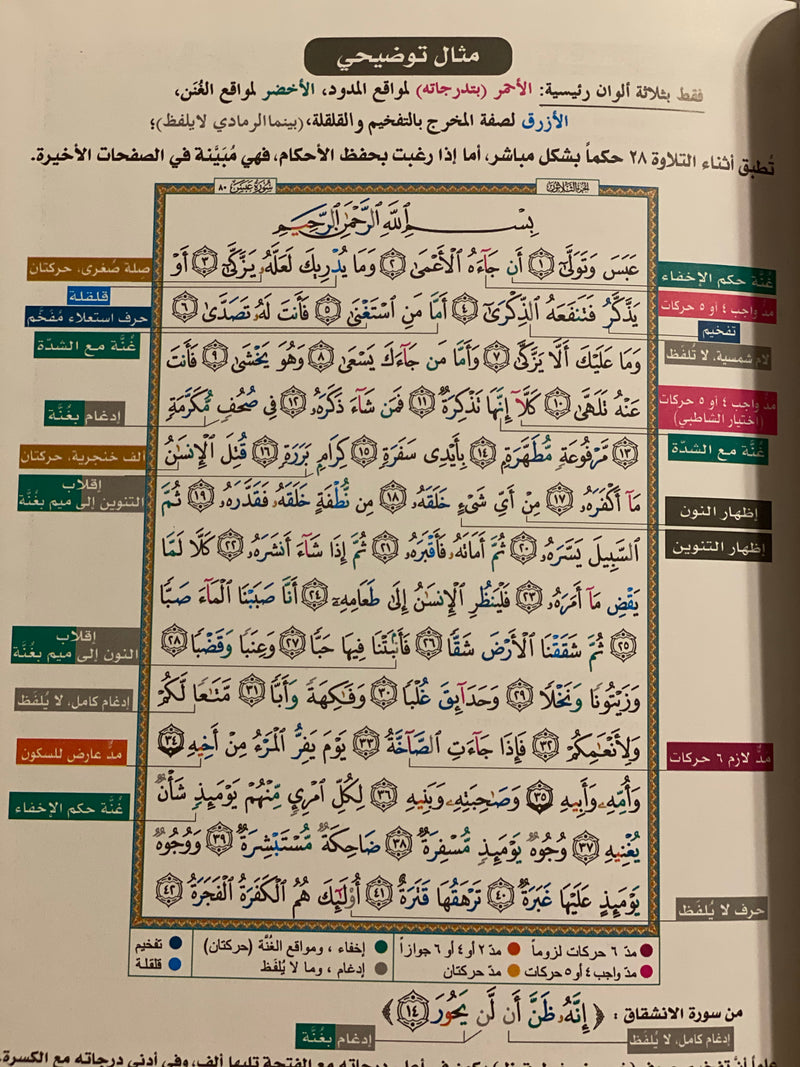 مثال توضيحي
فقط بثلاثة ألوان رئيسية: الأحمر (بتدرجاته) لمواقع المدود، الأخضر لمواقع الغُنَن،
الأزرق لصفة المخرج بالتفخيم و القلقلة، (بينما الرمادي لا يلفظ)؛
تُطبق أثناء التلاوة ٢٨ حكماً بشكل مباشر، أما إذا رغبت بحفظ الأحكام، فهي مُبَيَّنة في الصفحات الأخيرة.
الجزء الثلاثون
سورة عبس ٨٠
بِسْمِ اللَّهِ الرَّحْمَٰنِ الرَّحِيمِ
عَبَسَ وَتَوَلَّىٰٓ ١ أَن جَآءَهُ الْأَعْمَىٰ ٢ وَمَا يُدْرِيكَ لَعَلَّهُۥ يَزَّكَّىٰٓ ٣ أَوْ
يَذَّكَّرُ فَتَنفَعَهُ الذِّكْرَىٰٓ ٤ أَمَّا مَنِ اسْتَغْنَىٰ ٥ فَأَنتَ لَهُۥ تَصَدَّىٰ ٦
وَمَا عَلَيْكَ أَلَّا يَزَّكَّىٰ ٧ وَأَمَّا مَن جَآءَكَ يَسْعَىٰ ٨ وَهُوَ يَخْشَىٰ ٩ فَأَنتَ
عَنْهُ تَلَهَّىٰ ١٠ كَلَّآ إِنَّهَا تَذْكِرَةٌ ١١ فَمَن شَآءَ ذَكَرَهُۥ ١٢ فِى صُحُفٍ مُّكَرَّمَةٍ
١٣ مَّرْفُوعَةٍ مُّطَهَّرَةٍ ١٤ بِأَيْدِى سَفَرَةٍ ١٥ كِرَامٍ بَرَرَةٍ ١٦ قُتِلَ الْإِنسَٰنُ
مَآ أَكْفَرَهُۥ ١٧ مِنْ أَىِّ شَىْءٍ خَلَقَهُۥ ١٨ مِن نُّطْفَةٍ خَلَقَهُۥ فَقَدَّرَهُۥ ١٩ ثُمَّ
السَّبِيلَ يَسَّرَهُۥ ٢٠ ثُمَّ أَمَاتَهُۥ فَأَقْبَرَهُۥ ٢١ ثُمَّ إِذَا شَآءَ أَنشَرَهُۥ ٢٢ كَلَّا لَمَّا
يَقْضِ مَآ أَمَرَهُۥ ٢٣ فَلْيَنظُرِ الْإِنسَٰنُ إِلَىٰ طَعَامِهِۦٓ ٢٤ أَنَّا صَبَبْنَا الْمَآءَ صَبًّا
٢٥ ثُمَّ شَقَقْنَا الْأَرْضَ شَقًّا ٢٦ فَأَنۢبَتْنَا فِيهَا حَبًّا ٢٧ وَعِنَبًا وَقَضْبًا ٢٨
وَزَيْتُونًا وَنَخْلًا ٢٩ وَحَدَآئِقَ غُلْبًا ٣٠ وَفَٰكِهَةً وَأَبًّا ٣١ مَّتَٰعًا لَّكُمْ
وَلِأَنْعَٰمِكُمْ ٣٢ فَإِذَا جَآءَتِ الصَّآخَّةُ ٣٣ يَوْمَ يَفِرُّ الْمَرْءُ مِنْ أَخِيهِ ٣٤
وَأُمِّهِۦ وَأَبِيهِ ٣٥ وَصَٰحِبَتِهِۦ وَبَنِيهِ ٣٦ لِكُلِّ امْرِئٍ مِّنْهُمْ يَوْمَئِذٍ شَأْنٌ
يُغْنِيهِ ٣٧ وُجُوهٌ يَوْمَئِذٍ مُّسْفِرَةٌ ٣٨ ضَاحِكَةٌ مُّسْتَبْشِرَةٌ ٣٩ وَوُجُوهٌ
يَوْمَئِذٍ عَلَيْهَا غَبَرَةٌ ٤٠ تَرْهَقُهَا قَتَرَةٌ ٤١ أُو۟لَٰٓئِكَ هُمُ الْكَفَرَةُ الْفَجَرَةُ ٤٢
غُنَّة حكم الإخفاء
مدّ واجب ٤ أو ٥ حركات
تفخيم
لام شمسية، لا تُلفَظ
مدّ واجب ٤ أو ٥ حركات
(اختيار الشاطبي)
غُنَّة مع الشدّة
إظهار النون
إظهار التنوين
مدّ لازم ٦ حركات
حرف لا يُلفَظ
صلة صُغرى، حركتان
قلقلة
حرف استعلاء مُفخَّم
غُنَّة مع الشدّة
إدغام بغُنَّة
ألف خنجرية، حركتان
إقلاب
التنوين إلى ميم بغُنَّة
إقلاب
النون إلى ميم بغُنَّة
إدغام كامل، لا يُلفَظ
مدّ عارض للسكون
غُنَّة حكم الإخفاء
مدّ ٦ حركات لزوماً
مدّ ٢ أو ٤ أو ٦ جوازاً
إخفاء ، ومواقع الغُنَّة (حركتان)
تفخيم
مدّ واجب ٤ أو ٥ حركات
مدّ حركتان
إدغام ، وما لا يُلفَظ
قلقلة
من سورة الانشقاق : ﴿ إِنَّهُۥ ظَنَّ أَن لَّن يَحُورَ ١٤ ﴾
إدغام كامل، لا يُلفَظ
إدغام بغُنَّة